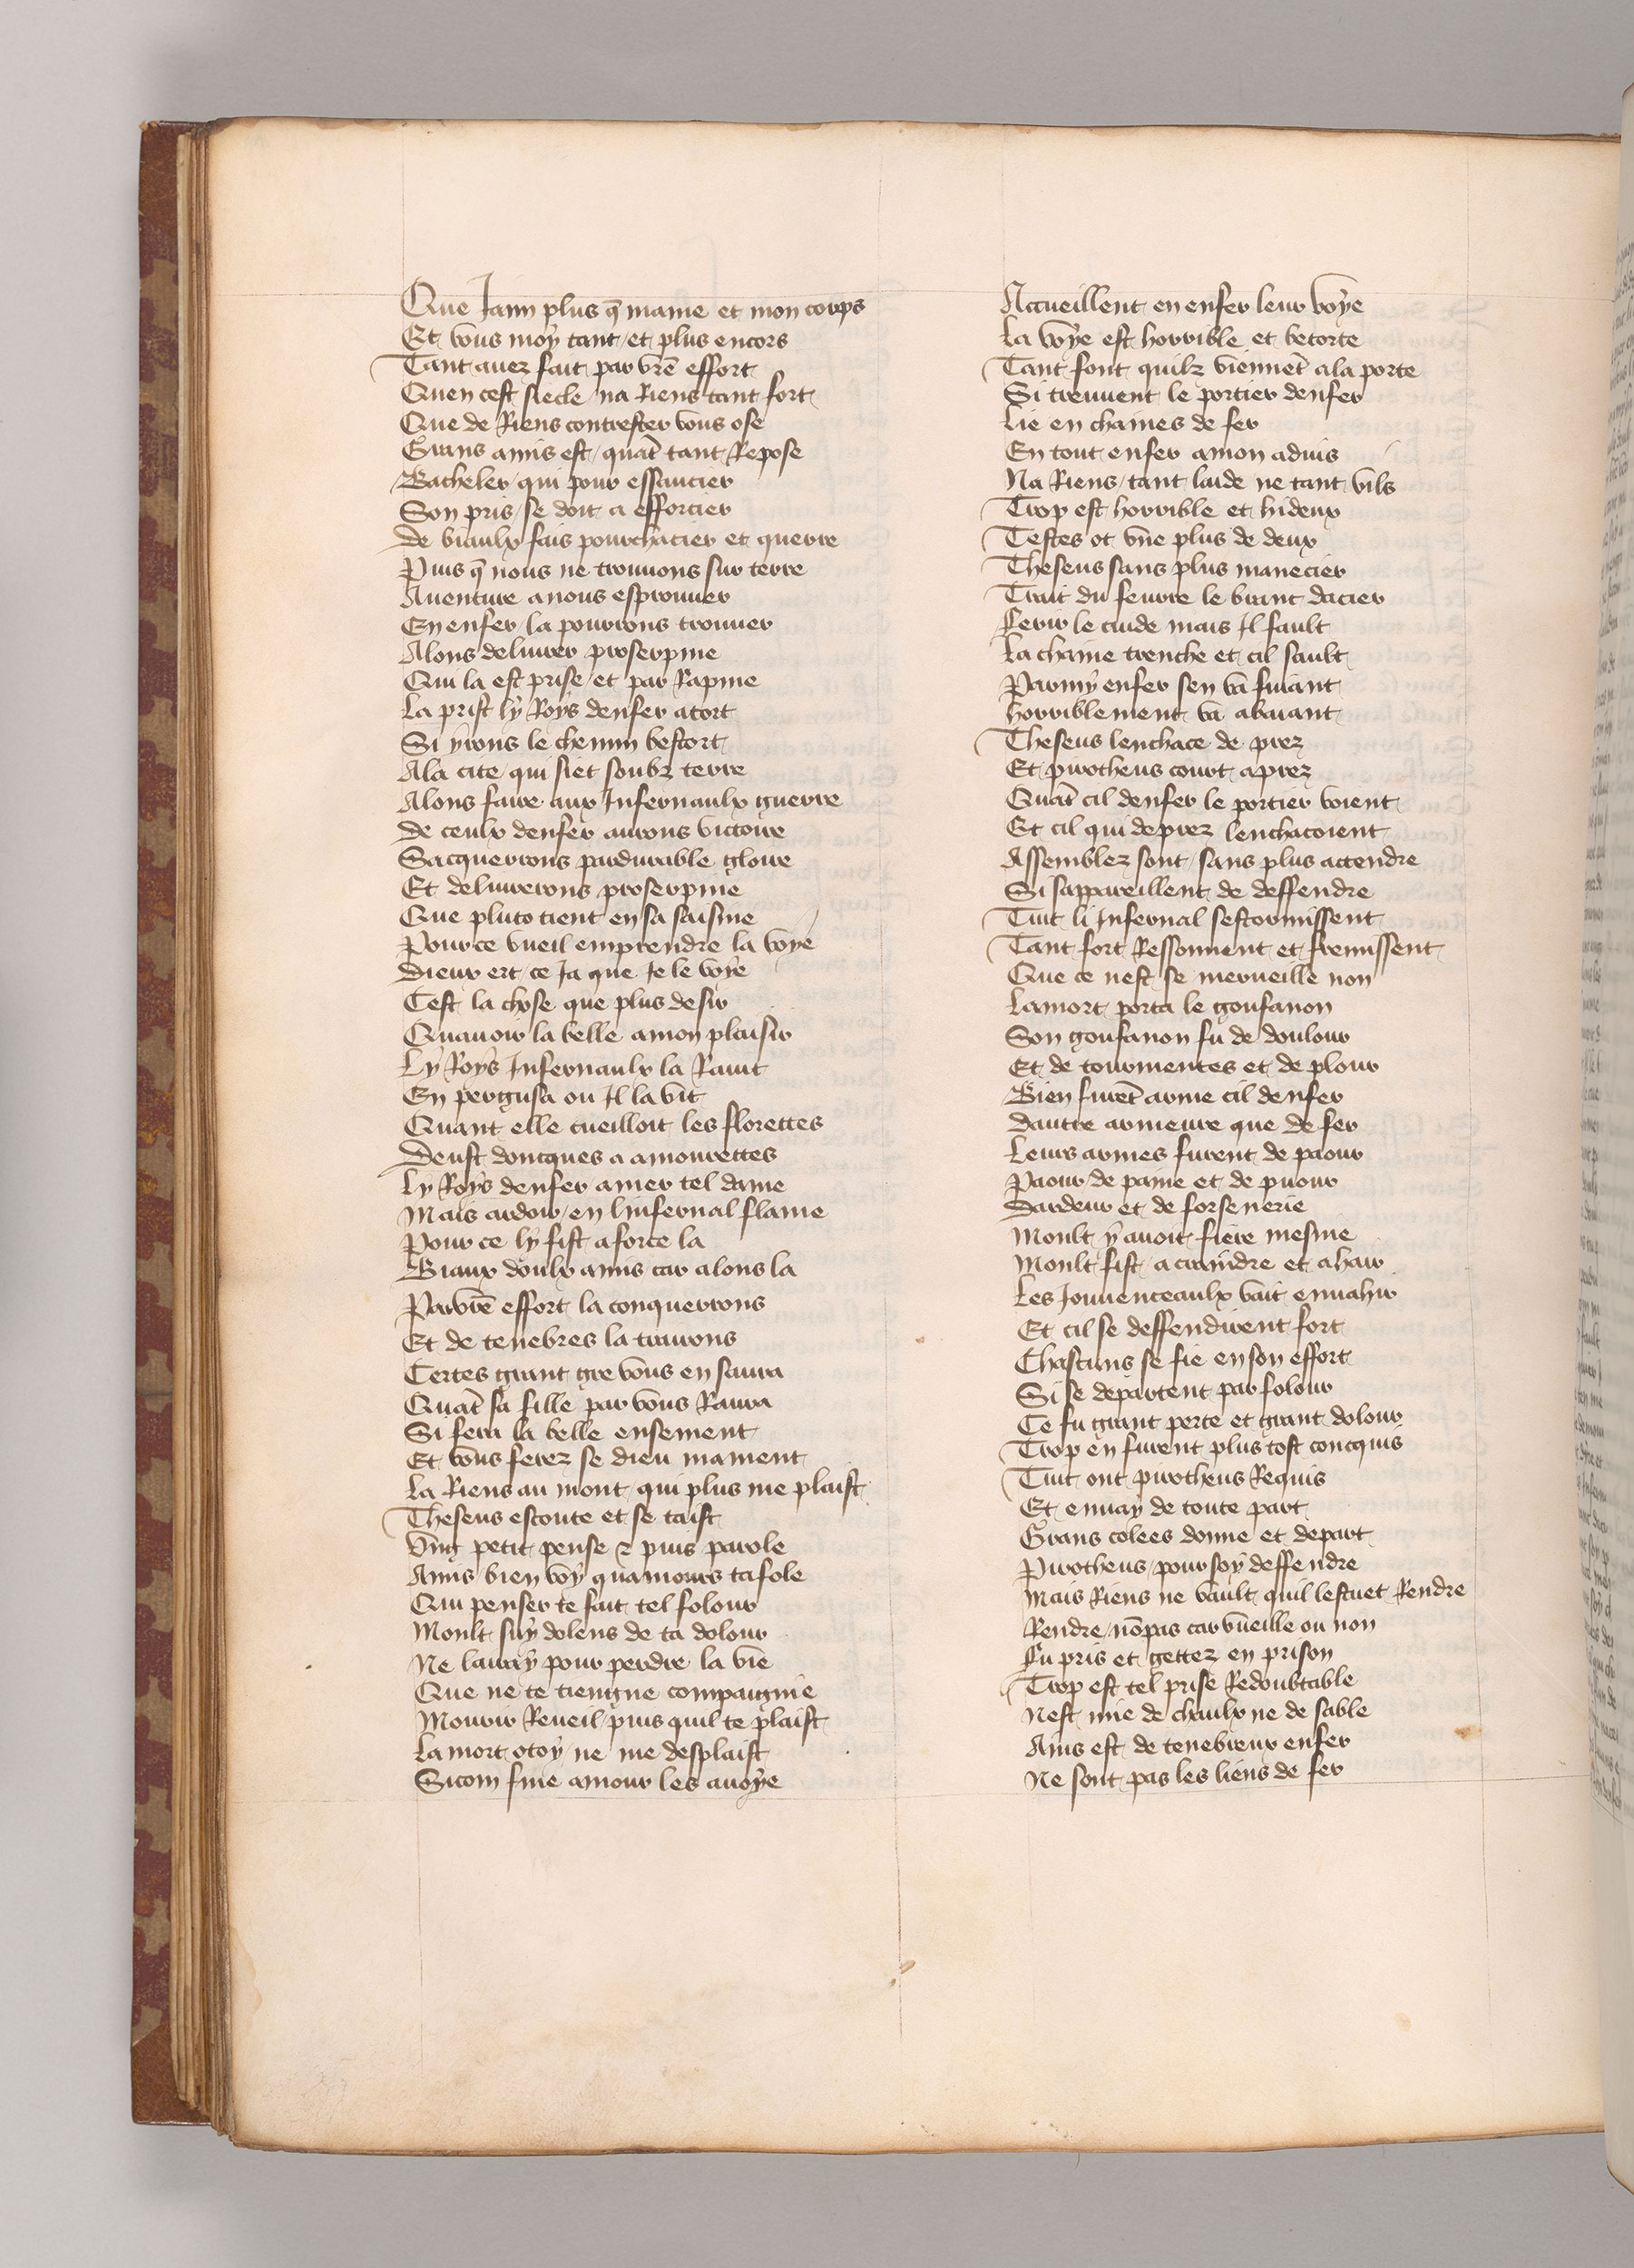 Que Jaim plus q̃ mame et mon corps
Et vous moy tant et plus encors
Tant auez fait par vrẽ effort
Quen cest siecle na Riens tant fort
Que de Riens contrester vous ose
Grans amis est quãt tant Repose
Bacheler qui pour essaucier
Son pris se doit a efforcier
De biaulx fais pourchacier et querre
Puis q̃ nous ne trouuons sur terre
Auenture a nous esprouuer
En enfer la pourrons trouuer
Alons deliurer proserpine
Qui la est prise et par Rapine
La prist ly Roys denfer a tort
Si yrons le chemin bestort
A la cite qui siet soubz terre
Alons faire aux Infernaulx guerre
De ceulx denfer aurons victoire
Sacquerrons pardurable gloire
Et deliurerons proserpine
Que pluto tient en sa saisine
Pour ce vueil emprendre la voye
Dieux ert ce Ja que Je le voye
Cest la chose que plus desir
Quauoir la belle a mon plaisir
Ly Roys Infernaulx la Rauit
En pergusa ou Il la vit
Quant elle cueilloit les florettes
Deust doncques a amourettes
Ly Roys denfer amer tel dame
Mais ardoir en linfernal flame
Pour ce ly fist a force la
Biaux doulx amis car alons la
Par vrẽ effort la conquerrons
Et de tenebres la trairons
Certes grant gre vous en saura
Quãt sa fille par vous Raura
Si fera la belle ensement
Et vous ferez se dieu mament
La Riens au mont qui plus me plaist
Theseus escoute et se taist
Vng petit pense & puis parole
Amis bien voy quamours tafole
Qui penser te fait tel folour
Moult suy dolens de ta dolour
Ne lairay pour perdre la vie
Que ne te tiengne compaignie
Mourir Reueil puis quil te plaist
La mort o toy ne me desplaist
Sicom fine amour les auoye
Accueillent en enfer leur voye
La voye est horrible et betorte
Tant font quilz viennẽt a la porte
Si treuuent le portier denfer
Lie en chaines de fer
En tout enfer a mon aduis
Na Riens tant laide ne tant vils
Trop est horrible et hideux
Testes ot vne plus de deux
Theseus sans plus manecier
Trait du feurre le brant dacier
Ferir le cuide mais Il fault
La chaine trenche et cil sault
Parmy enfer sen va fuiant
Horriblement va abaiant
Theseus lenchace de prez
Et pirotheus court aprez
Quãt cil denfer le portier voient
Et cil qui de prez lenchacoient
Assemblez sont sans plus attendre
Si sappareillent de deffendre
Tuit li Infernal sestormissent
Tant fort Ressonnent et fremissent
Que ce nest se merueille non
La mort porta le gonfanon
Son gonfanon fu de doulour
Et de tourmentes et de plour
Bien furẽt arme cil denfer
Dautre armeure que de fer
Leurs armes furent de paour
Paour de paine et de puour
Dardeur et de forsenerie
Moult y auoit fiere mesnie
Moult fist a craindre et a hair
Les Jouuenceaulx vait enuahir
Et cil se deffendirent fort
Chascuns se fie en son effort
Si se departent par folour
Ce fu grant perte et grant dolour
Trop en furent plus tost concquis
Tuit ont pirotheus Requis
Et enuay de toute part
Grans colees donne et depart
Pirotheus pour soy deffendre
Mais Riens ne vault quil lestuet Rendre
Rendre nõ pas car vueille ou non
Fu pris et gettez en prison
Trop est tel prise Redoubtable
Nest mie de chaulx ne de sable
Ains est de tenebreux enfer
Ne sont pas les liens de fer